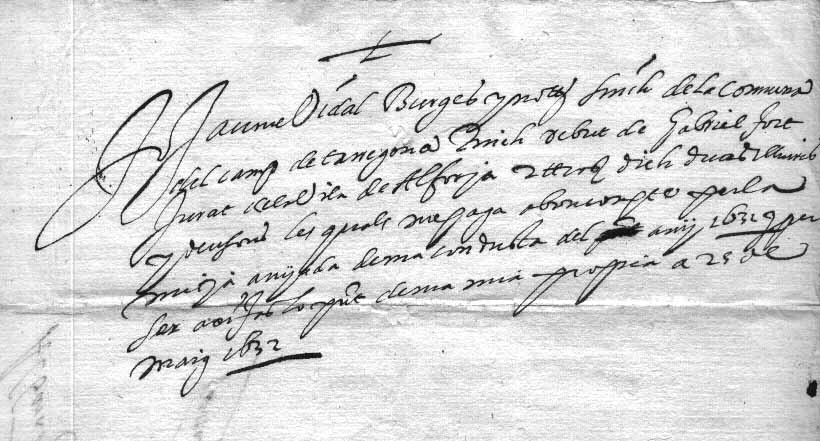 Jaume Vidal Burges y not(t) sindich de la Comuna
del camp de tarragona tinch rebut de Gabriel fort
Jurat de la Vila de Alforja
y deu sous les quals me paga a bon compte per la
mitja anyada de ma conducta del any 1631 y per
ser axi fas lo pnt de ma mia propria a 25 de
maig 1632